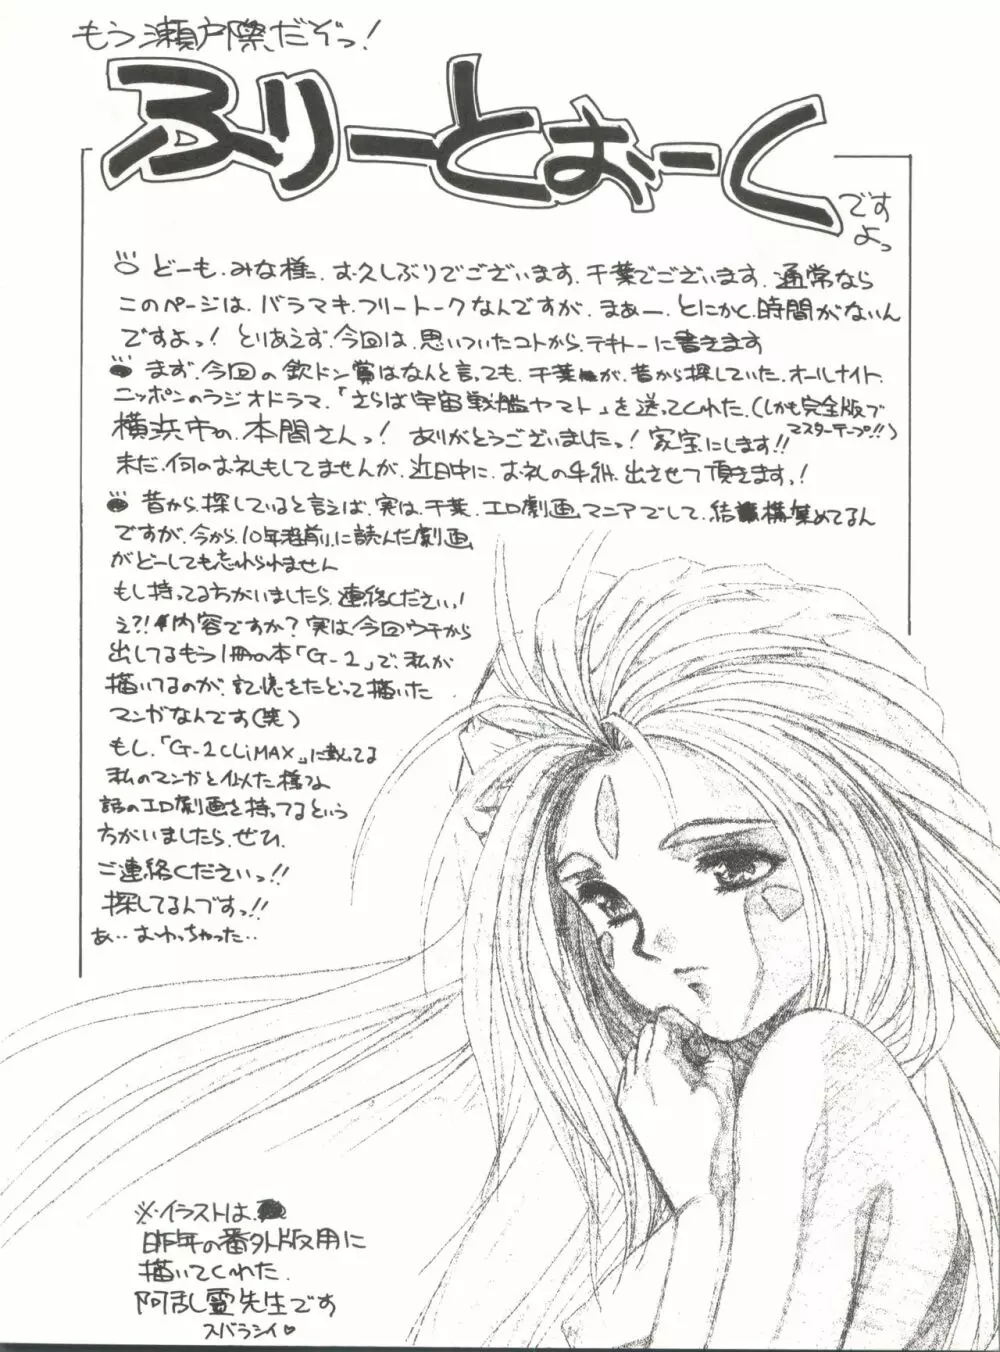 もう瀬戸際だぞっ!
ふりーとぉーく
です
よっ
どーも、みな様、お久しぶりでございます、千葉でございます、通常なら
このページは、バラマキ、フリートークなんですが、まぁー、とにかく、時間がないん
ですよっ! とりあえず、今回は、思いついたコトから、テキトーに書きます
まず、今回の欽ドン賞はなんと言っても、千葉が、昔から探していた、オールナイト、
ニッポンのラジオドラマ、「さらば宇宙戦艦ヤマト」を送ってくれた、(しかも完全版で
マスターテープ!!)
横浜市の、本間さんっ! ありがとうございましたっ! 家宝にします!!
未だ、何のお礼もしてませんが、近日中に、お礼の手紙、出させて頂きます!
昔から、探していると言えば、実は、千葉、エロ劇画マニアでして、結構集めてるん
ですが、今から、10年程前に読んだ劇画
がどーしても忘れられません
もし持ってる方がいましたら、連絡ください!
え?!内容ですか?実は今回ウチから
出してるもう1冊の本「G-2」で、私が
描いてるのが、記憶をたどって描いた
マンガなんです(笑)
もし、「G-2 CLiMAX」に載ってる
私のマンガと似た様な
話のエロ劇画を持ってるという
方がいましたら、ぜひ、
ご連絡くださいっ!!
探してるんですっ!!
あ・・おわっちゃった・・
※イラストは、
昨年の番外版用に
描いてくれた、
阿乱霊先生です
スバラシイ♡